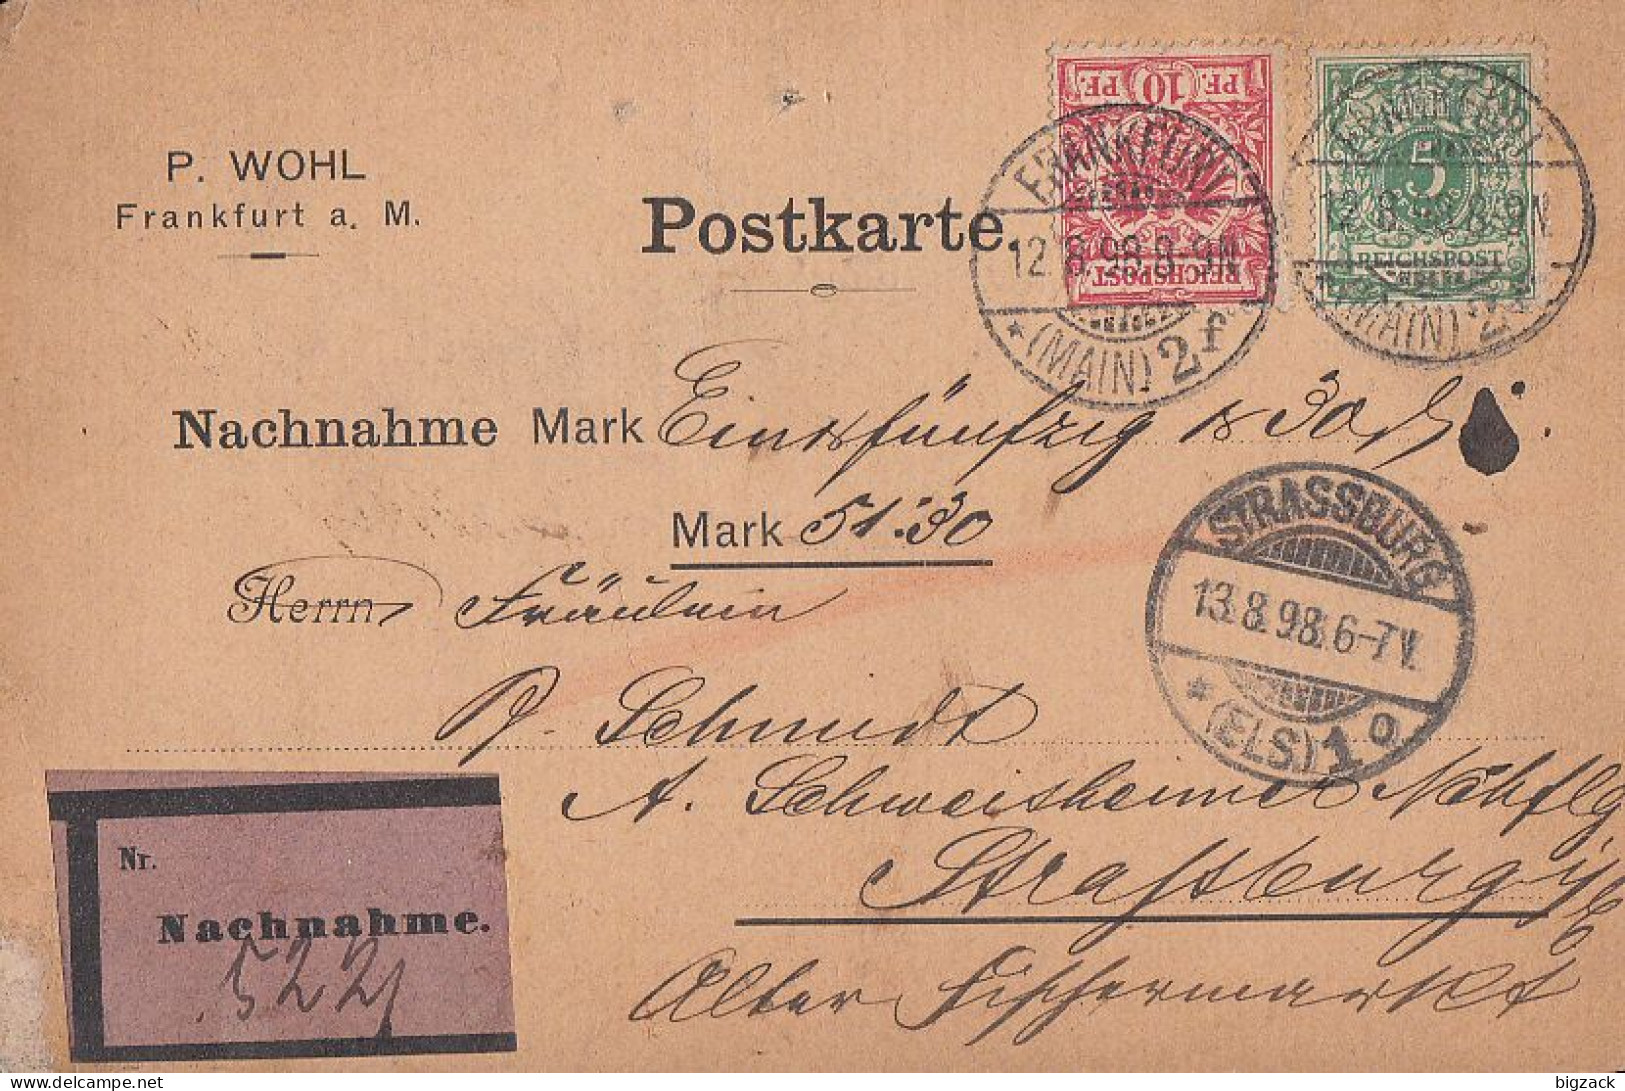 P. WOHL
Frankfurt a. M.
Postkarte.
10 PF. 10 PF.
REICHSPOST
FRANKFURT
12.8.98.8-9N.
* (MAIN) 2 f
5
REICHSPOST
12.8.98.8-9N
(MAIN) 2
Nachnahme Mark Einundfünfzig & 30
Mark 51.30
Herrn Fräulein
P. Schmidt
A. Schweisheimer Nchflg
Straßburg i/E
Alter Fischermarkt
STRASSBURG
13.8.98.6-7V.
* (ELS.) 1 o.
Nr.
Nachnahme.
522
bigzack
delcampe.net